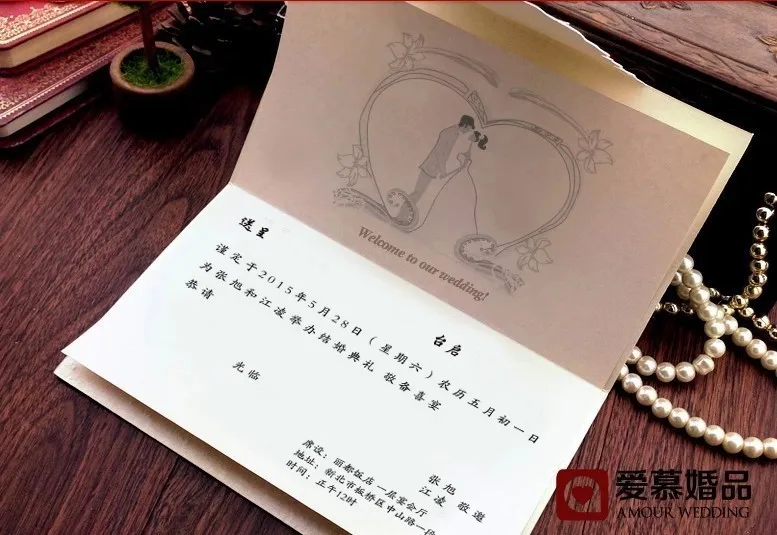 Welcome to our wedding!
送呈
台启
谨定于2015年5月28日（星期六）农历五月初一日
为张旭和江凌举办结婚典礼 敬备喜宴
恭请
光临
张旭
江凌 敬邀
席设：丽都饭店一层宴会厅
地址：新北市板桥区中山路一段
时间：正午12时
爱慕婚品
AMOUR WEDDING